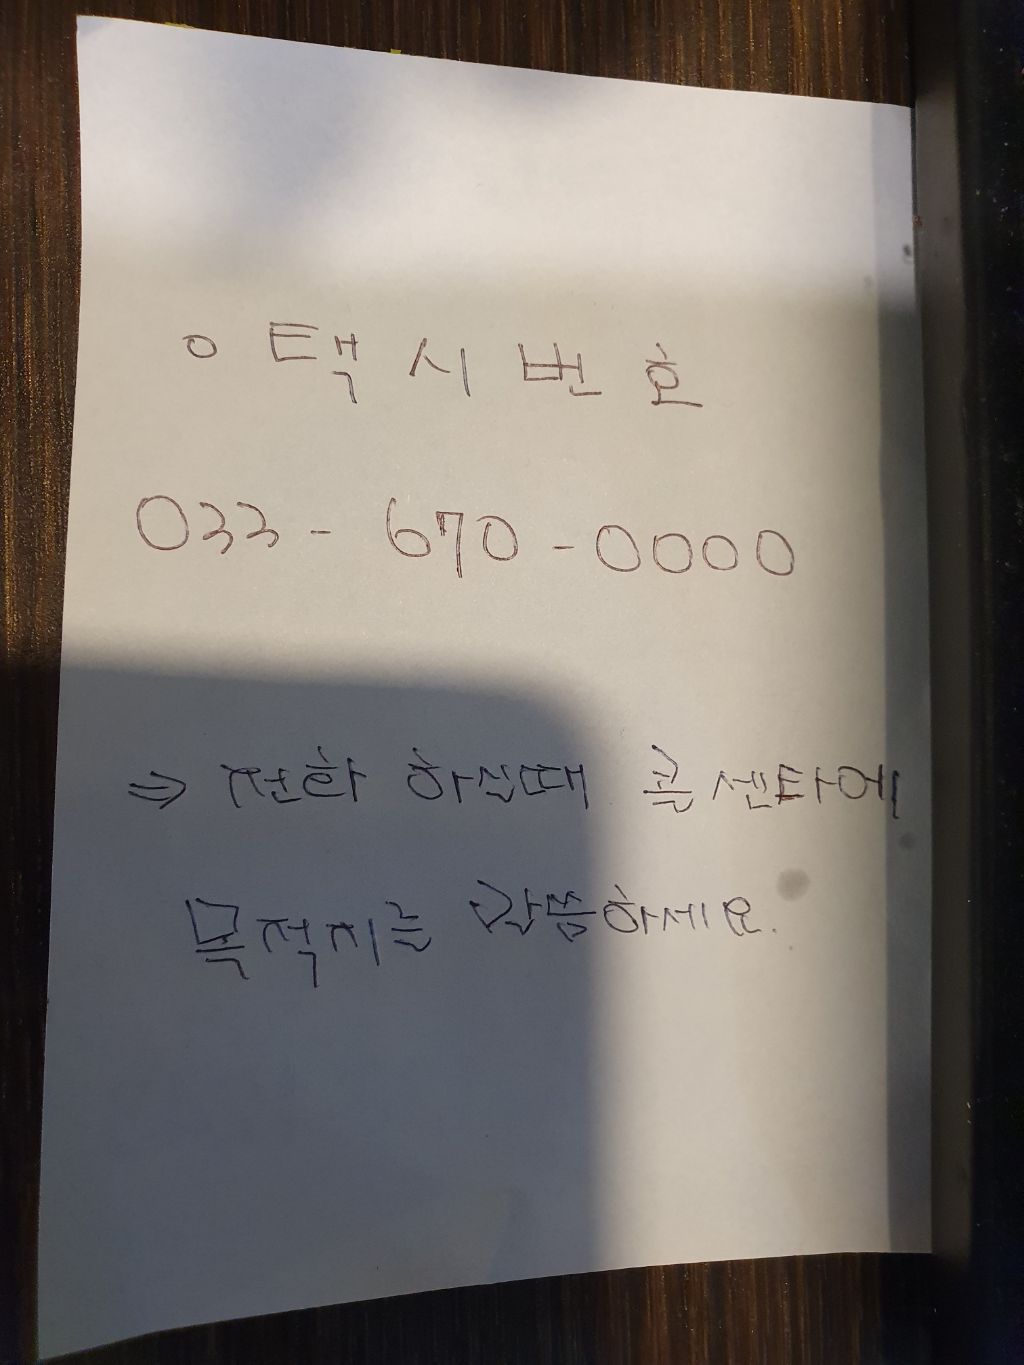 ○ 택시 번호
033 - 670 - 0000
⇒ 전화 하실때 콜센타에
목적지를 말씀하세요.